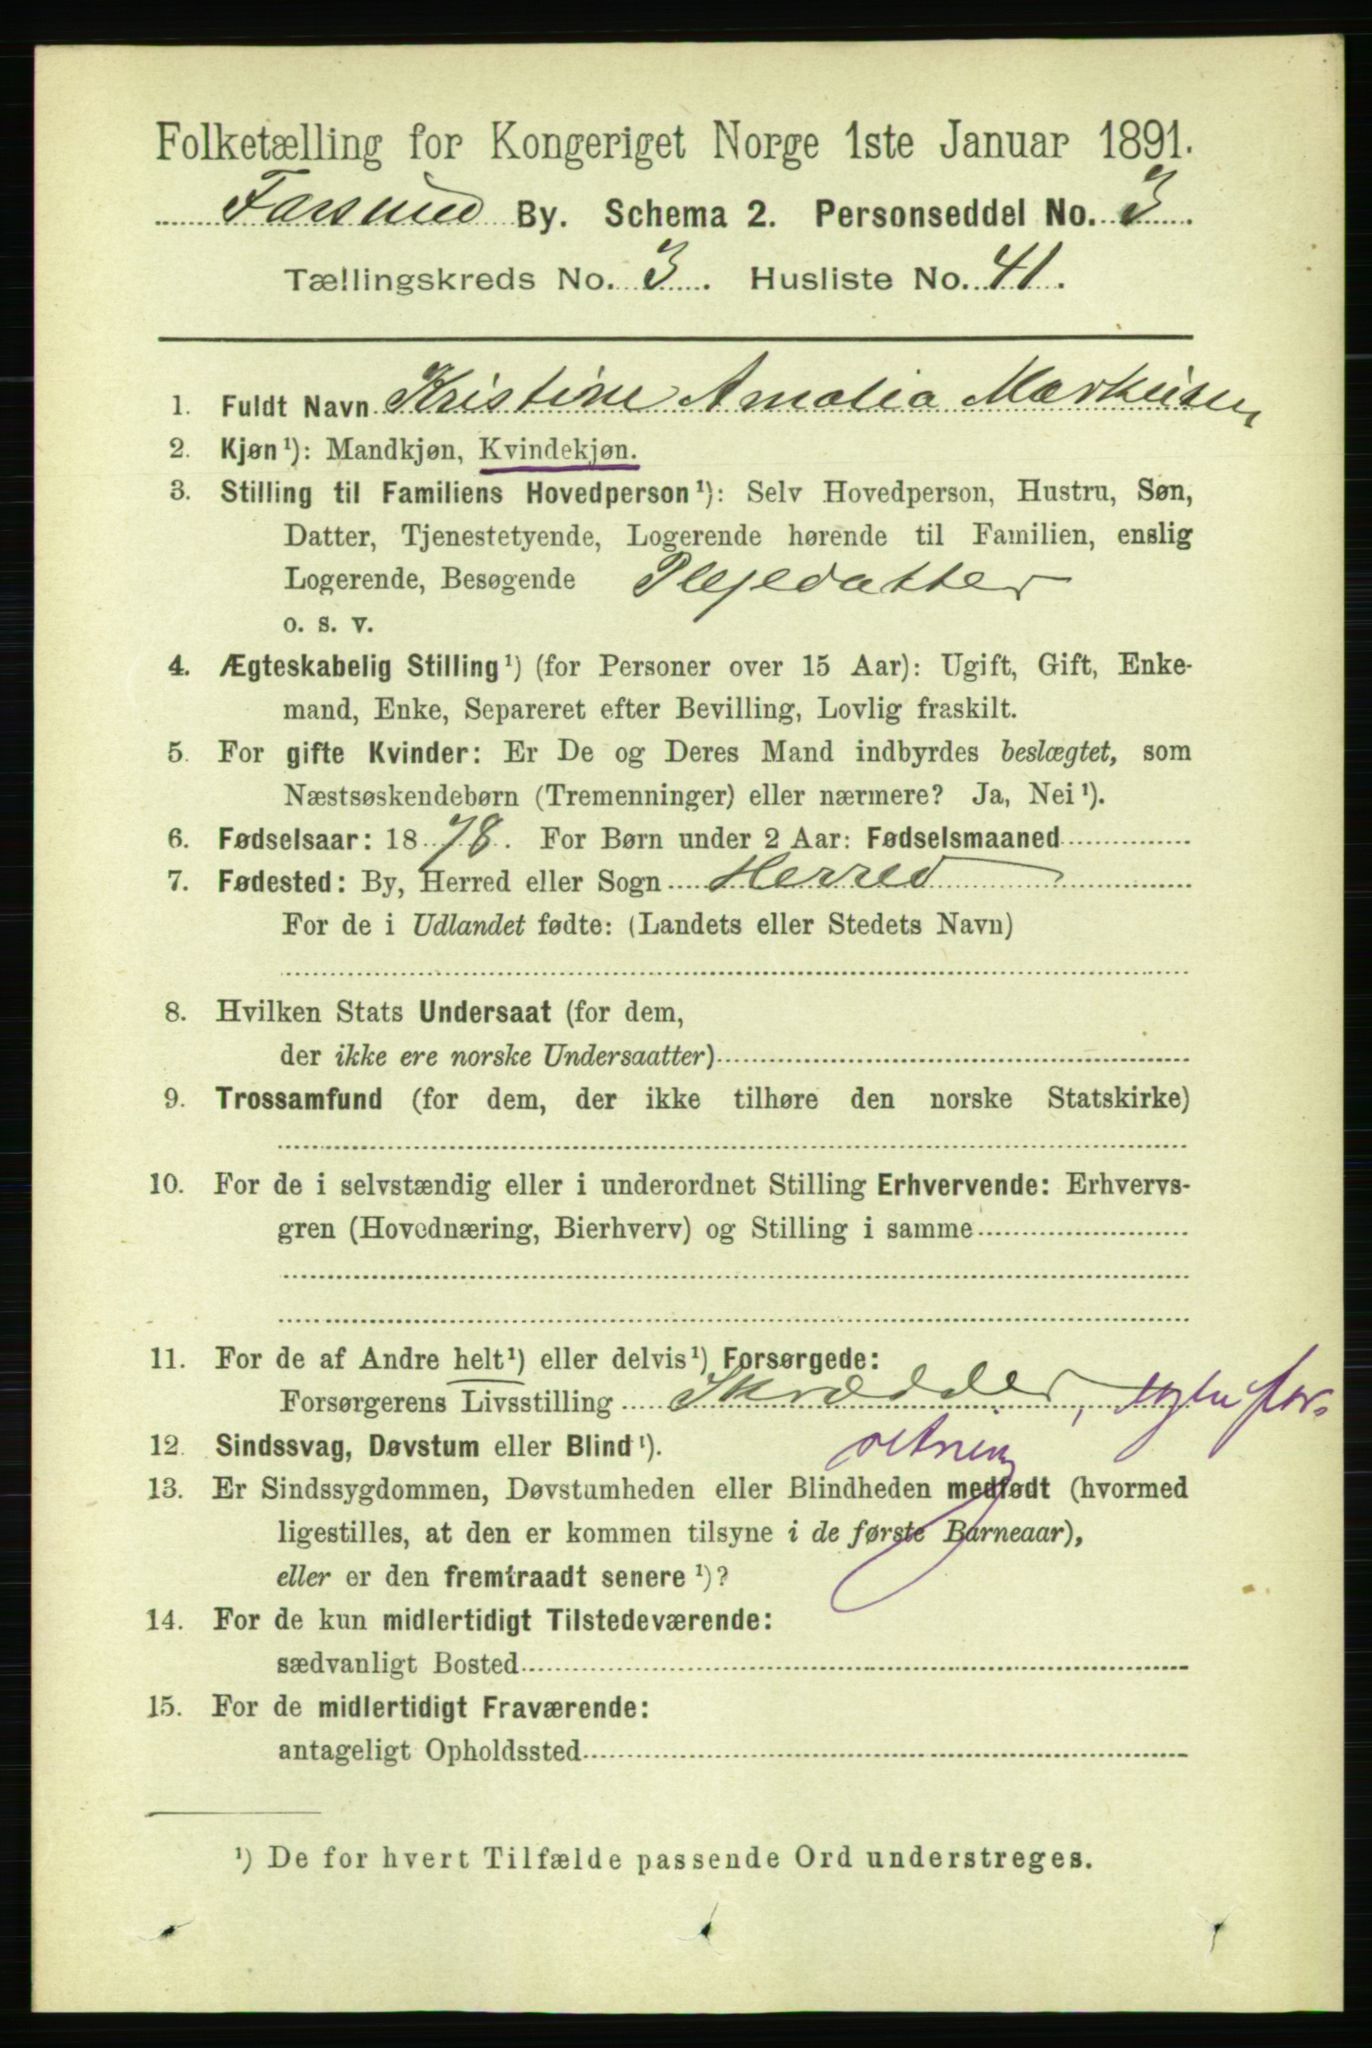 Folketælling for Kongeriget Norge 1ste Januar 1891.
Farsund By. Schema 2. Personseddel No. 3
Tællingskreds No. 3. Husliste No. 41.
1. Fuldt Navn Kristine Amalia Markusen
2. Kjøn¹): Mandkjøn, Kvindekjøn.
3. Stilling til Familiens Hovedperson¹): Selv Hovedperson, Hustru, Søn,
Datter, Tjenestetyende, Logerende hørende til Familien, enslig
Logerende, Besøgende Plejedatter
o. s. v.
4. Ægteskabelig Stilling¹) (for Personer over 15 Aar): Ugift, Gift, Enke-
mand, Enke, Separeret efter Bevilling, Lovlig fraskilt.
5. For gifte Kvinder: Er De og Deres Mand indbyrdes beslægtet, som
Næstsøskendebørn (Tremenninger) eller nærmere? Ja, Nei¹).
6. Fødselsaar: 1878. For Børn under 2 Aar: Fødselsmaaned
7. Fødested: By, Herred eller Sogn Herred
For de i Udlandet fødte: (Landets eller Stedets Navn)
8. Hvilken Stats Undersaat (for dem,
der ikke ere norske Undersaatter)
9. Trossamfund (for dem, der ikke tilhøre den norske Statskirke)
10. For de i selvstændig eller i underordnet Stilling Erhvervende: Erhvervs-
gren (Hovednæring, Bierhverv) og Stilling i samme
11. For de af Andre helt¹) eller delvis¹) Forsørgede:
Forsørgerens Livsstilling Skrædder, egen for-
retning
12. Sindssvag, Døvstum eller Blind¹).
13. Er Sindssygdommen, Døvstumheden eller Blindheden medfødt (hvormed
ligestilles, at den er kommen tilsyne i de første Barneaar),
eller er den fremtraadt senere¹)?
14. For de kun midlertidigt Tilstedeværende:
sædvanligt Bosted
15. For de midlertidigt Fraværende:
antageligt Opholdssted
¹) De for hvert Tilfælde passende Ord understreges.